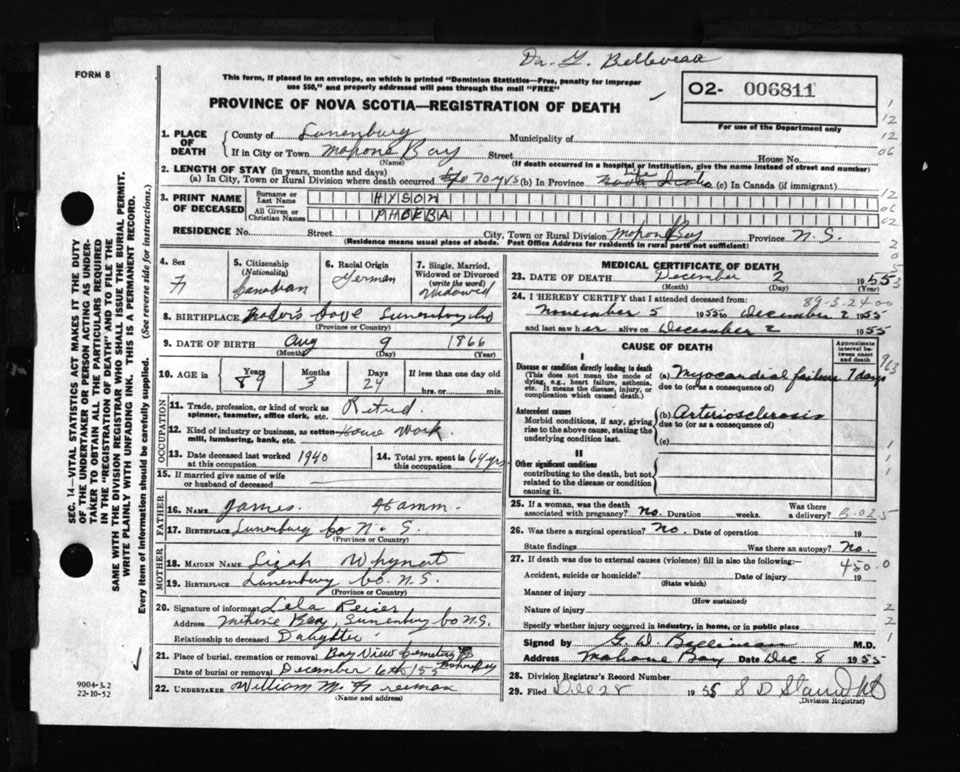 FORM 8
This form, if placed in an envelope, on which is printed "Dominion Statistics—Free, penalty for improper
use $50," and properly addressed will pass through the mail "FREE"
PROVINCE OF NOVA SCOTIA—REGISTRATION OF DEATH
O2- 006811
For use of the Department only
SEC. 14—VITAL STATISTICS ACT MAKES IT THE DUTY
OF THE UNDERTAKER OR PERSON ACTING AS UNDER-
TAKER TO OBTAIN ALL THE PARTICULARS REQUIRED
IN THE "REGISTRATION OF DEATH" AND TO FILE THE
SAME WITH THE DIVISION REGISTRAR WHO SHALL ISSUE THE BURIAL PERMIT.
WRITE PLAINLY WITH UNFADING INK. THIS IS A PERMANENT RECORD.
Every item of information should be carefully supplied. (See reverse side for instructions.)
1. PLACE OF DEATH
County of Lunenburg Municipality of
If in City or Town Mahone Bay Street House No.
(Name) (If death occurred in a hospital or institution, give the name instead of street and number)
2. LENGTH OF STAY (in years, months and days)
(a) In City, Town or Rural Division where death occurred 70 yrs (b) In Province Nova Scotia (c) In Canada (if immigrant)
3. PRINT NAME OF DECEASED
Surname or Last Name HYSON
All Given or Christian Names PHOEBA
RESIDENCE No. Street City, Town or Rural Division Mahone Bay Province N.S.
(Residence means usual place of abode. Post Office Address for residents in rural parts not sufficient)
4. Sex
F
5. Citizenship (Nationality)
Canadian
6. Racial Origin
German
7. Single, Married, Widowed or Divorced (write the word)
Widowed
8. BIRTHPLACE Mader's Cove Lunenburg Co
(Province or Country)
9. DATE OF BIRTH Aug 9 1866
(Month) (Day) (Year)
10. AGE in Years 89 Months 3 Days 24 If less than one day old
hrs. or min.
OCCUPATION
11. Trade, profession, or kind of work as spinner, teamster, office clerk, etc. Retired.
12. Kind of industry or business, as cotton mill, lumbering, bank, etc. House Work
13. Date deceased last worked at this occupation 1940
14. Total yrs. spent in this occupation 64 yrs
15. If married give name of wife or husband of deceased
FATHER
16. NAME James Hamm
17. BIRTHPLACE Lunenburg Co N. S.
(Province or Country)
MOTHER
18. MAIDEN NAME Lizah Whynot
19. BIRTHPLACE Lunenburg Co. N.S.
(Province or Country)
20. Signature of informant Lela
Address Mahone Bay, Lunenburg Co N.S.
Relationship to deceased Daughter
21. Place of burial, cremation or removal Bay View Cemetery Mahone Bay
Date of burial or removal December 6th/55
22. UNDERTAKER William M. Freeman
(Name and address)
9004-3.2
22-10-52
MEDICAL CERTIFICATE OF DEATH
23. DATE OF DEATH December 2 1955
(Month) (Day) (Year)
89-3-24 00
24. I HEREBY CERTIFY that I attended deceased from:
November 5 1955 to December 2 1955
and last saw her alive on December 2 1955
CAUSE OF DEATH
Approximate interval between onset and death
I
Disease or condition directly leading to death
(This does not mean the mode of dying, e.g., heart failure, asthenia, etc. It means the disease, injury, or complication which caused death.)
(a) Myocardial failure 7 days
due to (or as a consequence of)
Antecedent causes
Morbid conditions, if any, giving rise to the above cause, stating the underlying condition last.
(b) Arteriosclerosis
due to (or as a consequence of)
(c)
II
Other significant conditions
contributing to the death, but not related to the disease or condition causing it.
25. If a woman, was the death associated with pregnancy? No. Duration weeks. Was there a delivery?
26. Was there a surgical operation? No. Date of operation 19
State findings Was there an autopsy? No.
27. If death was due to external causes (violence) fill in also the following:
450.0
Accident, suicide or homicide? Date of injury 19
(State which)
Manner of injury
(How sustained)
Nature of injury
Specify whether injury occurred in industry, in home, or in public place
Signed by G. D. M.D.
Address Mahone Bay Date Dec. 8 1955
28. Division Registrar's Record Number
29. Filed Dec 28 1955 S D
(Division Registrar)